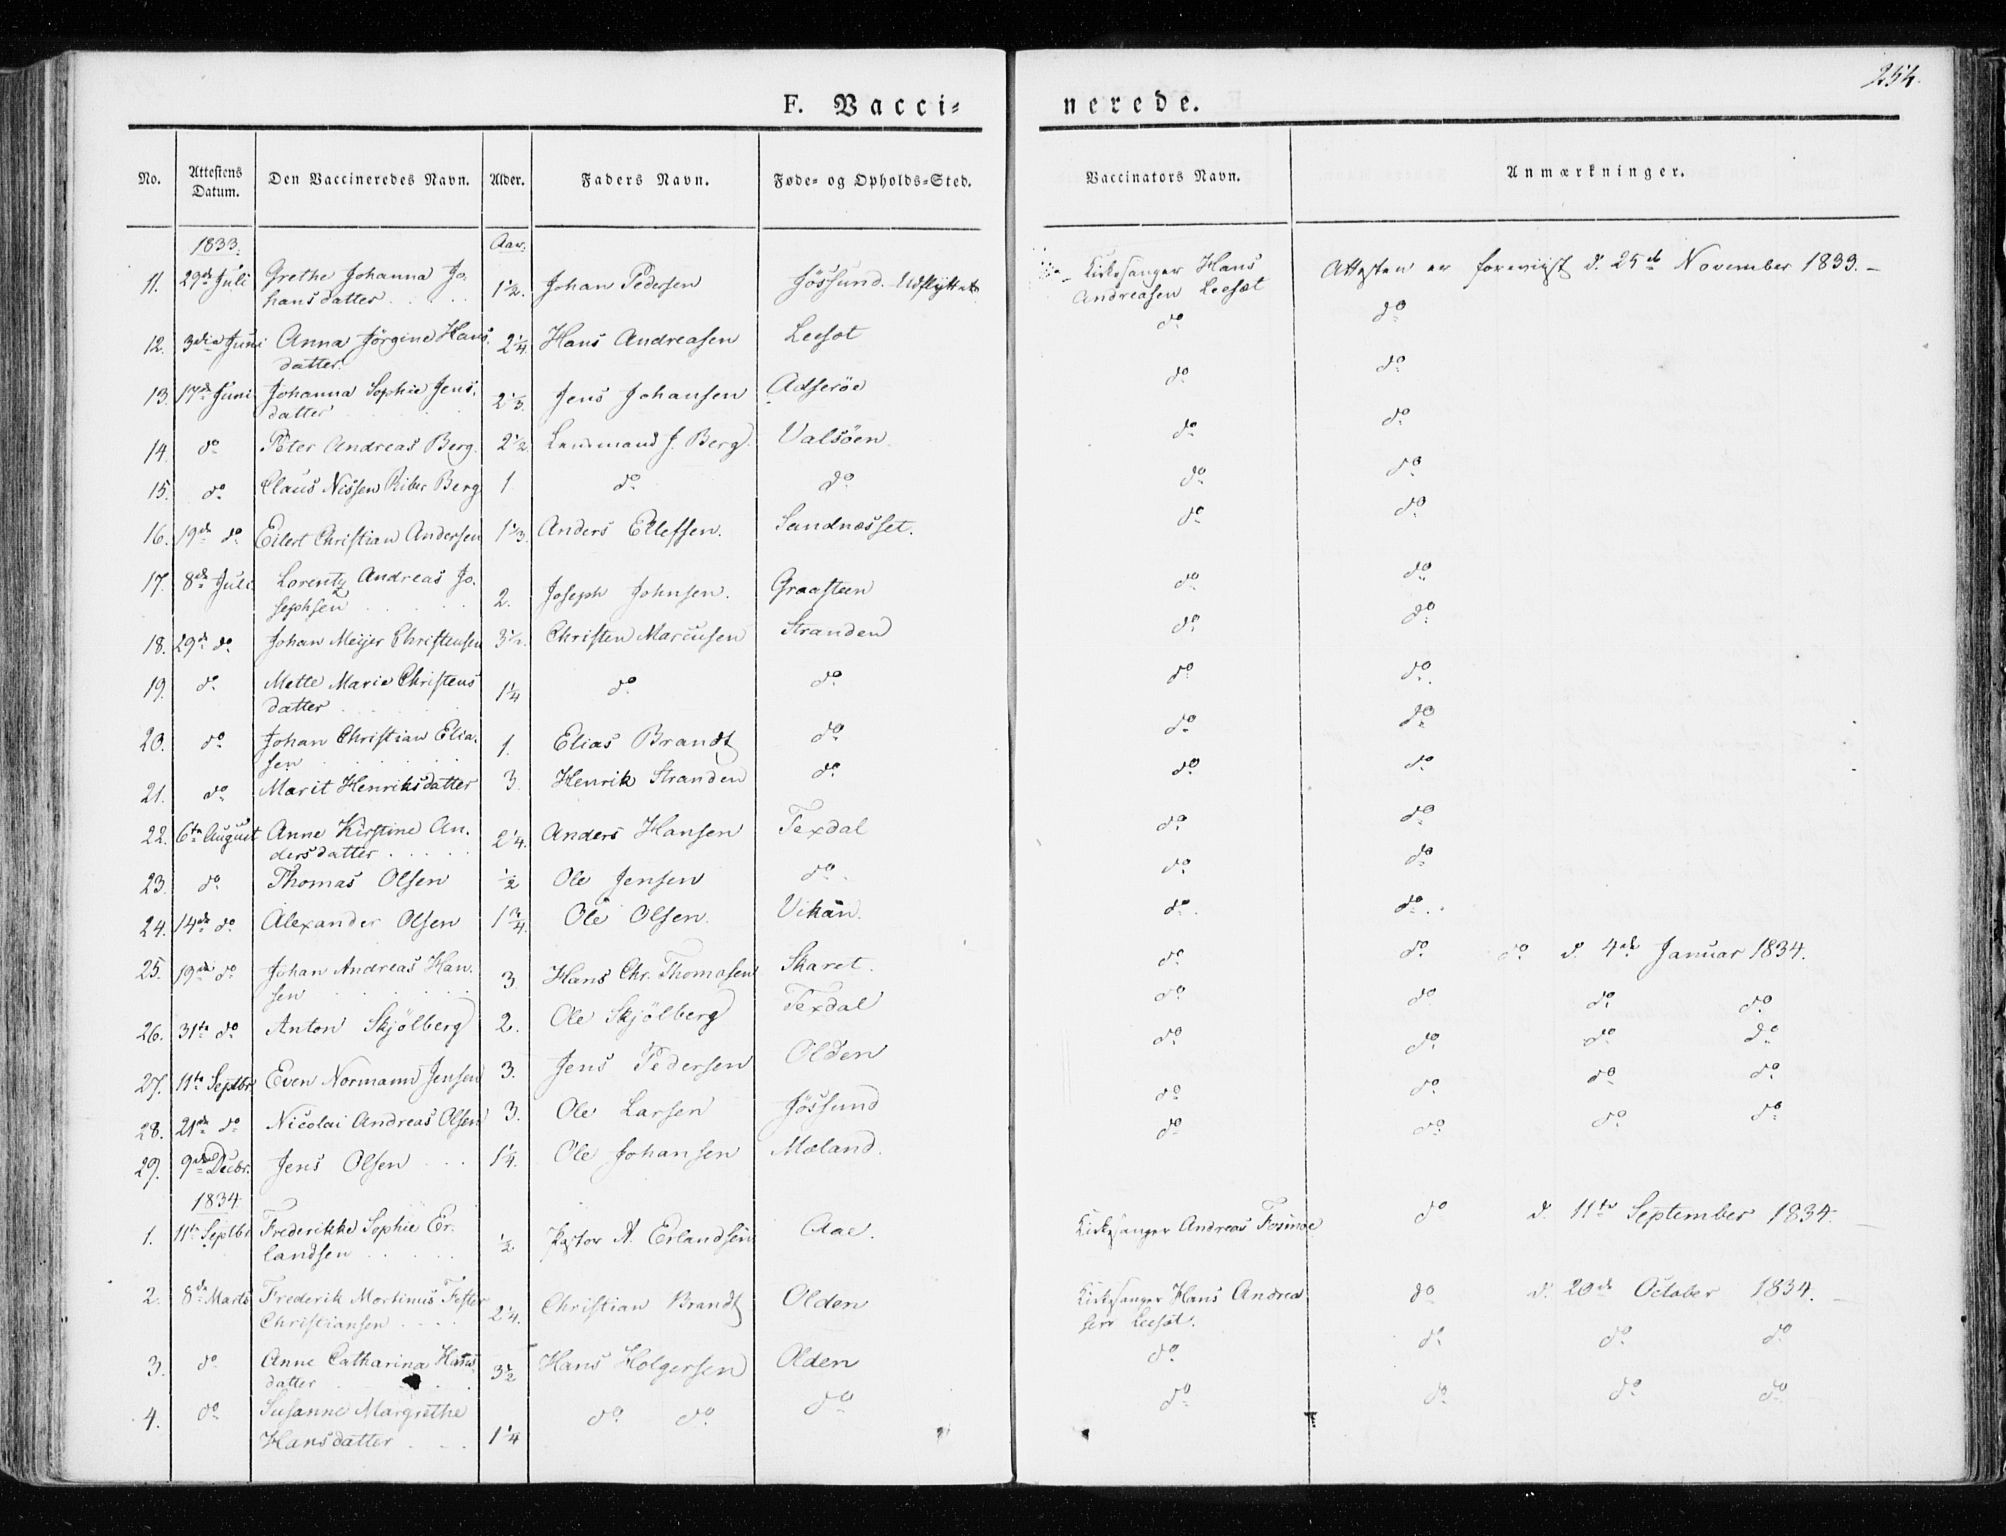 254.
F. Vacci=
nerede.
No.
Attestens Datum.
Den Vaccineredes Navn.
Alder.
Faders Navn.
Føde- og Opholds-Sted.
Vaccinators Navn.
Anmærkninger.
1833. Aar.
11. 29de Juli Grethe Johanna Jo- 1½. Johan Pedersen Jössund. Udflyttet Kirkesanger Hans Attesten er foreviist d. 25de November 1833. –
hansdatter . . . . Andreasen Leesæt
12. 3die Juni Anna Jörgine Hans- 2¼. Hans Andreasen Leesæt do do
datter.
13. 17de Juni Johanna Sophie Jens- 2⅓. Jens Johansen Adseröe do do
datter
14. do Peter Andreas Berg. 2½ Lensmand J. Berg. Valsöen do do
15. do Claus Nissen Riber Berg 1 do do do do
16. 19de do Eilert Christian Andersen 1⅓. Anders Ellefsen. Sandnæsset. do do
17. 8de Juli Lorentz Andreas Jo- 2. Joseph Johnsen. Graasteen do do
sephsen . . . . .
18. 29de do Johan Meijer Christensen 3½. Christen Marcusen Stranden do do
19. do Mette Marie Christens 1¼ do do do do.
datter . . . . .
20. do Johan Christian Elia- 1. Elias Brandt do do do
sen . . . . . .
21. do Marit Henriksdatter 3. Henrik Stranden do do do
22. 6te August Anne Kirstine An- 2¼. Anders Hansen Texdal do do
dersdatter . . . . .
23. do Thomas Olsen ½ Ole Jensen do. do do
24. 14de do Alexander Olsen 1¾. Ole Olsen. Vikan. do. do. .
25. 19de do Johan Andreas Han- 3. Hans Chr. Thomasen Skaret. do do do d. 4de Januar 1834.
sen . . . . . .
26. 31te do Anton Skjölberg 2. Ole Skjölberg Texdal do do do do
27. 11te Septbr Even Normann Jensen 3. Jens Pedersen Olden do do do do
28. 21de do Nicolai Andreas Olsen 3. Ole Larsen Jössund do do do do
29. 9de Decbr. Jens Olsen . . . 1¼. Ole Johansen Mæland. do do do do
1834.
1. 11te Septbr Frederikke Sophie Er- ½. Pastor A. Erlandsen Aae. Kirkesanger Andreas do d. 11te September 1834. –
landsen . . . . .
2. 8de Marts Frederik Mortinus Fester 2¼. Christian Brandt Olden Kirkesanger Hans Andrea do d. 20de October 1834. –
Christiansen . . . . sen Leesæt.
3. do Anne Catharina Hans- 3½ Hans Holgersen Olden do do do do
datter . . . .
4. do Susanne Margrethe 1¼ do do do do do do do
Hansdatter . . .